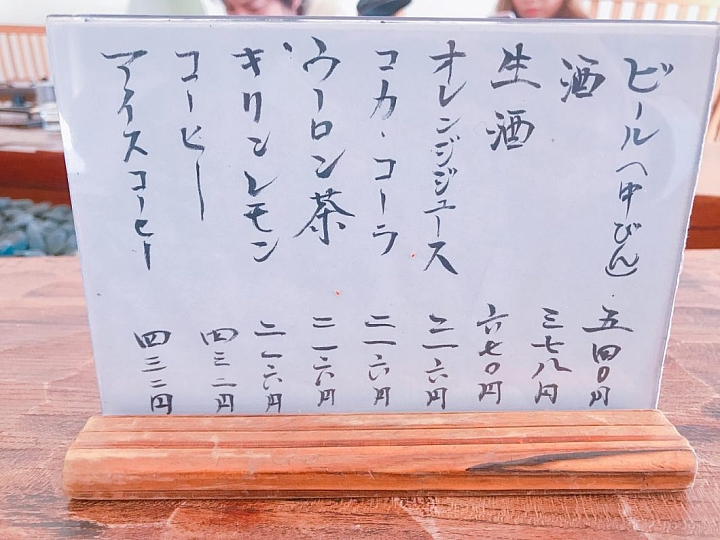 ビール(中びん) 五四〇円
酒 三七八円
生酒 六七〇円
オレンジジュース 二一六円
コカ・コーラ 二一六円
ウーロン茶 二一六円
キリンレモン 二一六円
コーヒー 四三二円
アイスコーヒー 四三二円